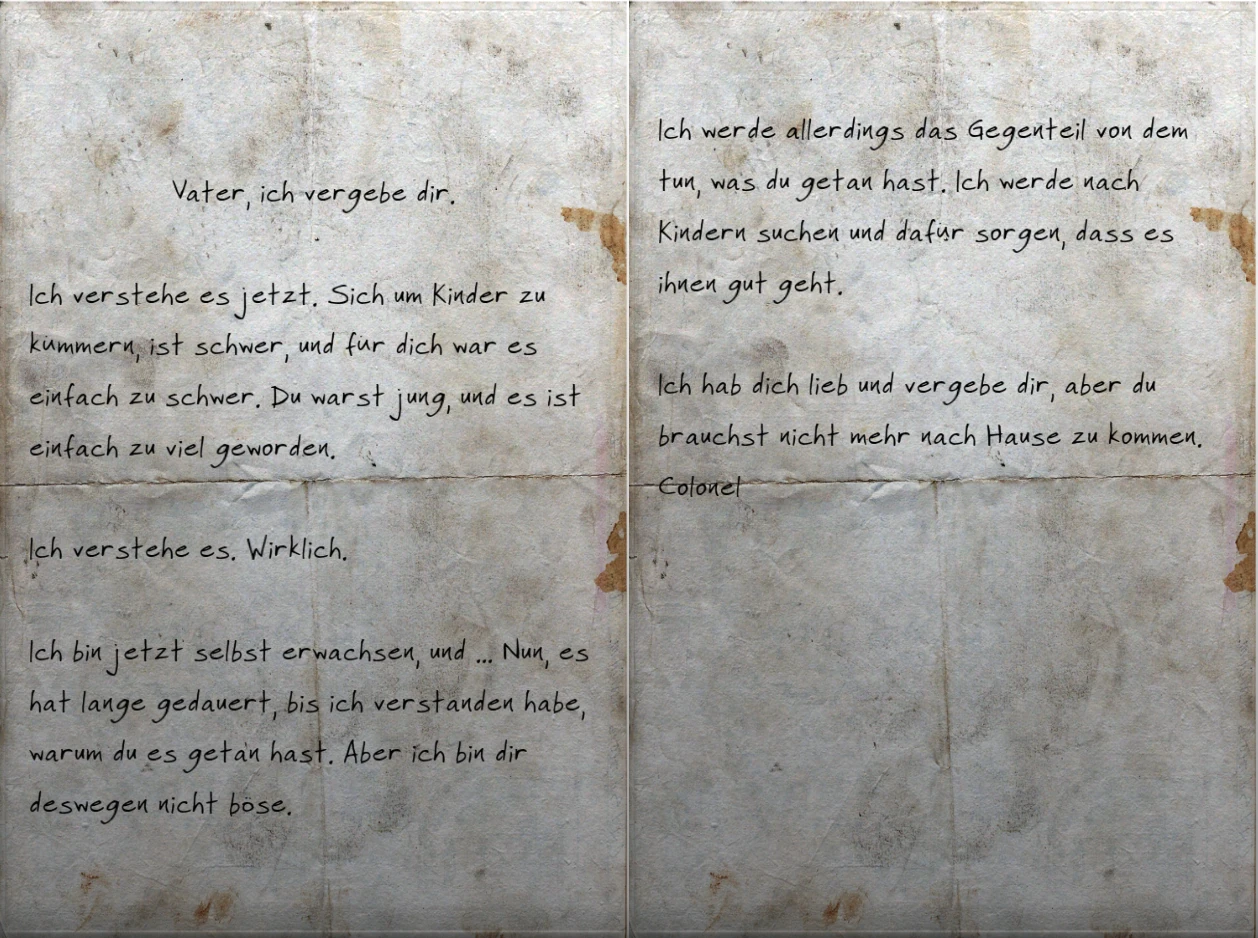 Vater, ich vergebe dir.
Ich verstehe es jetzt. Sich um Kinder zu
kümmern, ist schwer, und für dich war es
einfach zu schwer. Du warst jung, und es ist
einfach zu viel geworden.
Ich verstehe es. Wirklich.
Ich bin jetzt selbst erwachsen, und ... Nun, es
hat lange gedauert, bis ich verstanden habe,
warum du es getan hast. Aber ich bin dir
deswegen nicht böse.
Ich werde allerdings das Gegenteil von dem
tun, was du getan hast. Ich werde nach
Kindern suchen und dafür sorgen, dass es
ihnen gut geht.
Ich hab dich lieb und vergebe dir, aber du
brauchst nicht mehr nach Hause zu kommen.
Colonel